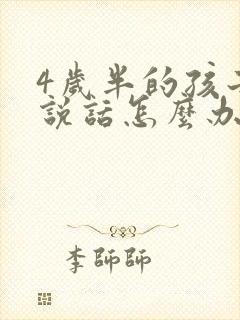 4歲半的孩
說話怎麼办
李師師